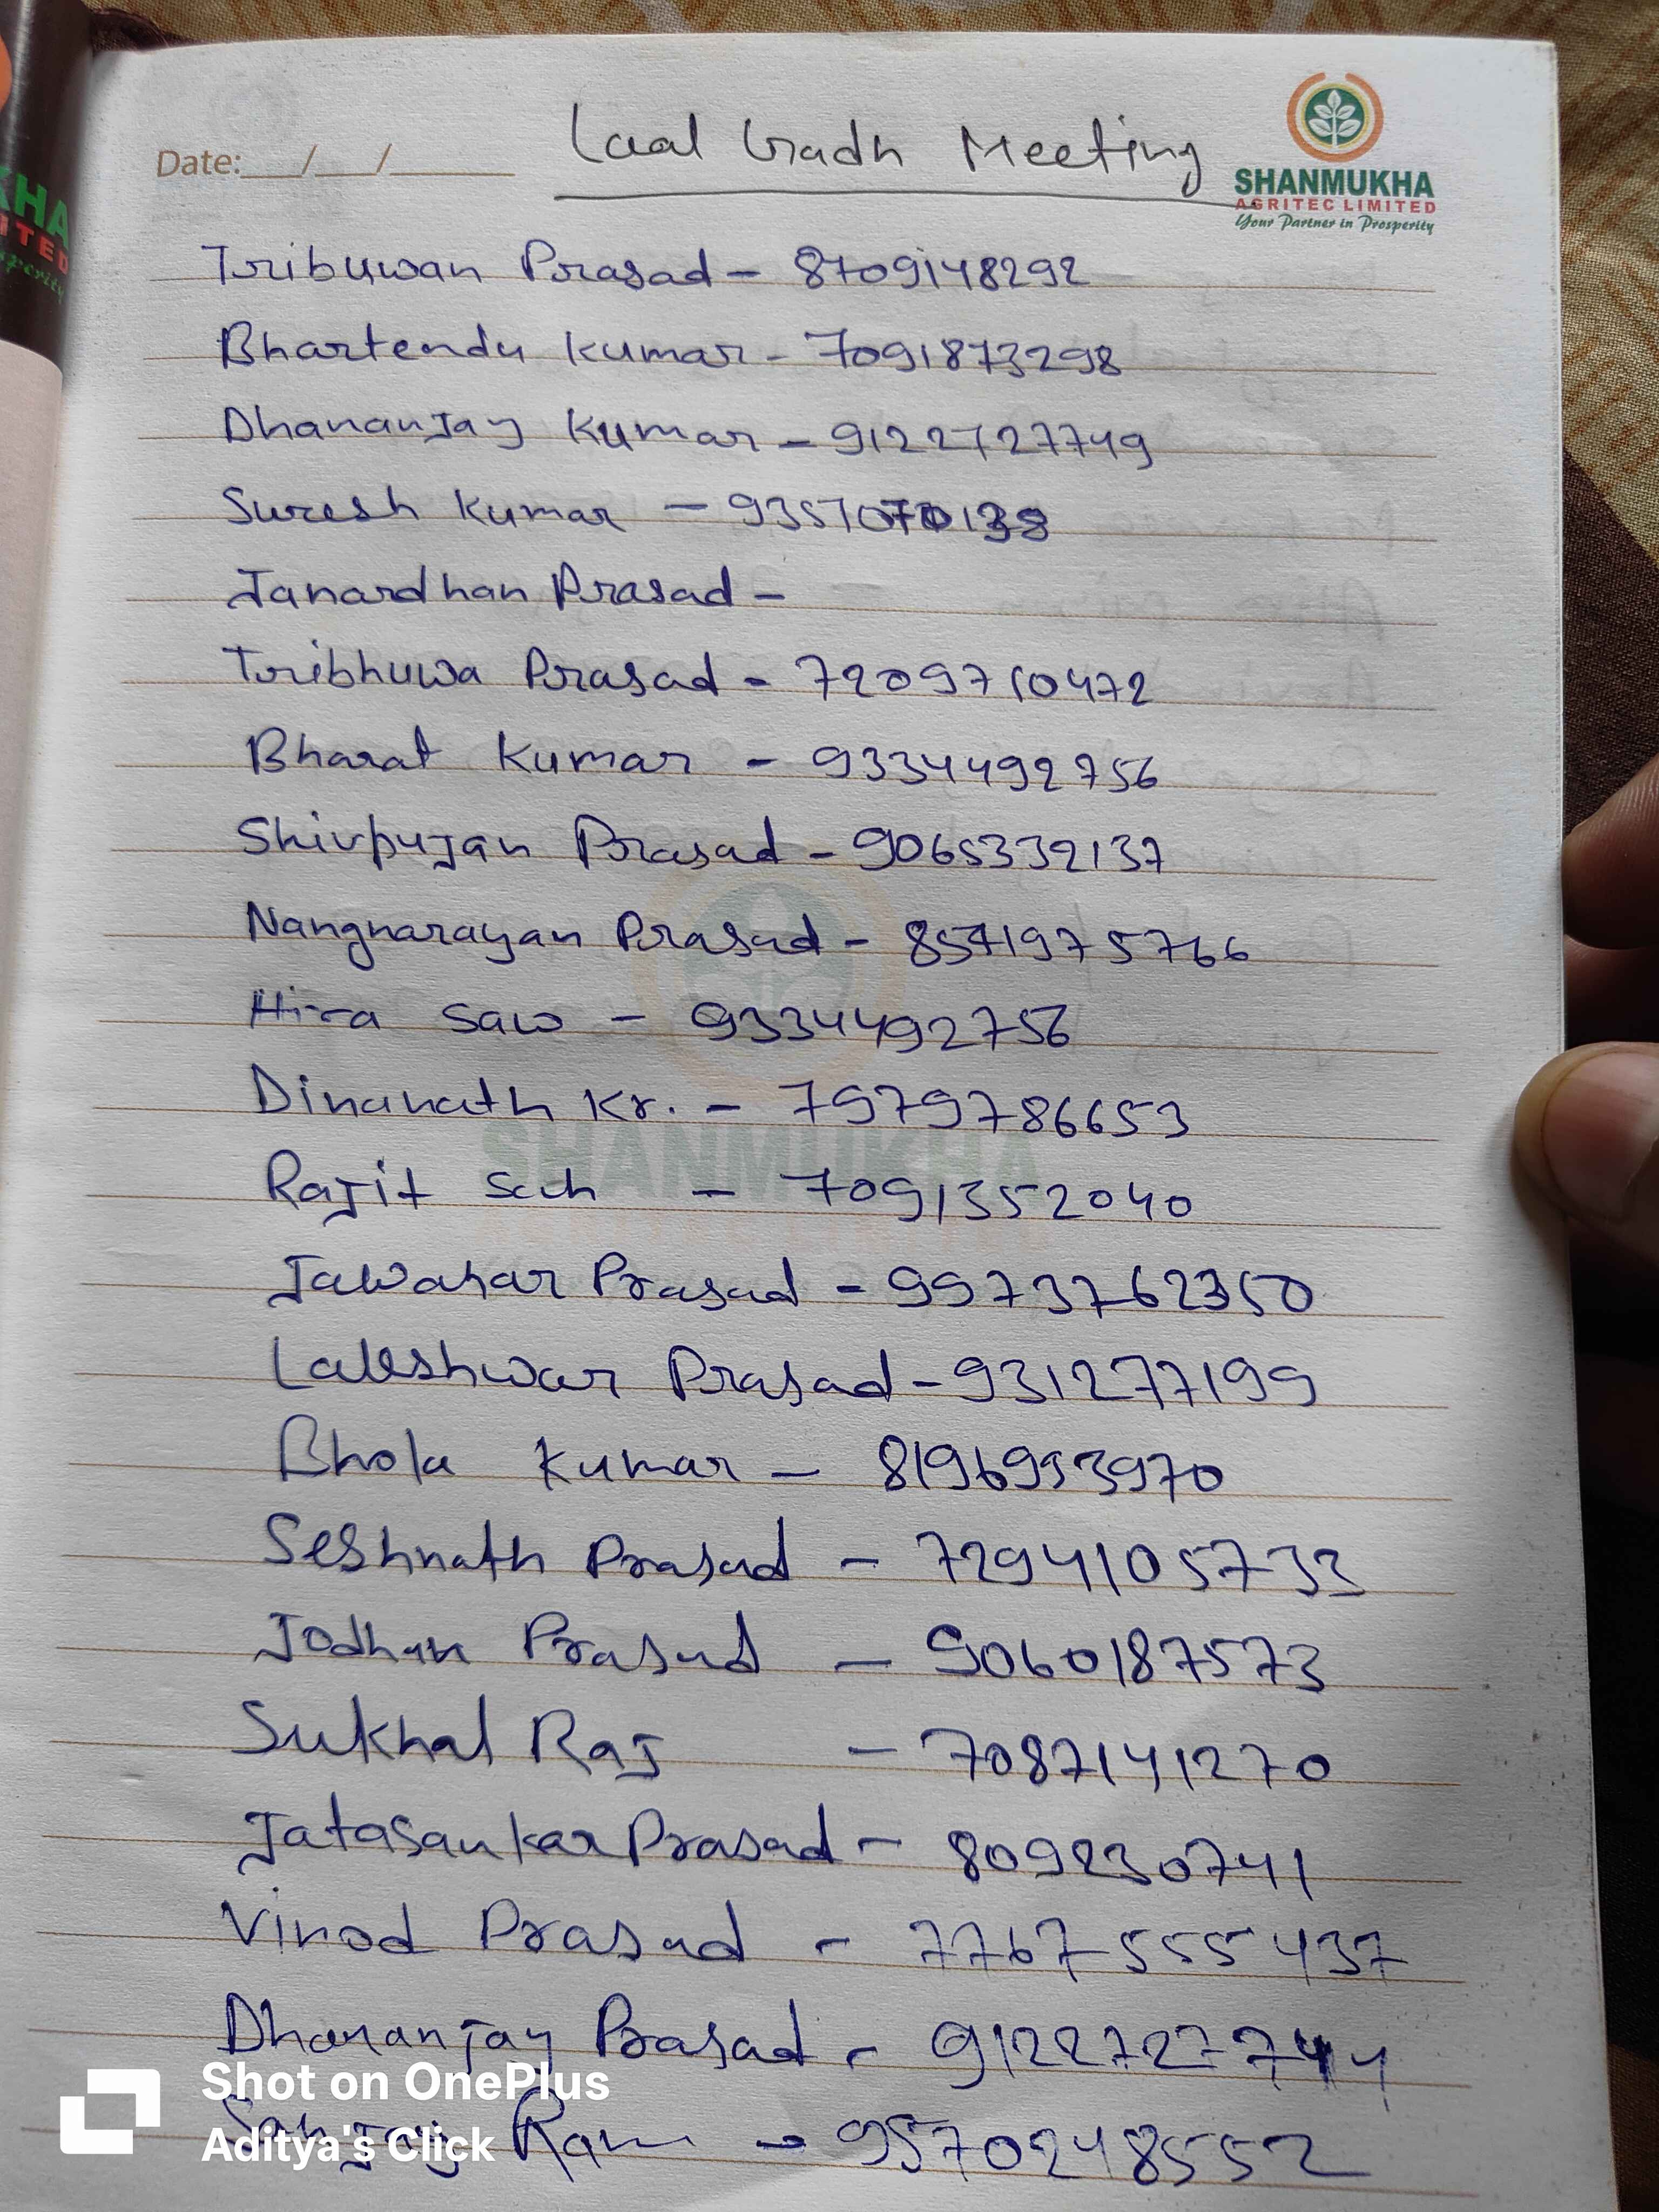 Laal Gadh Meeting
Date:___/___/______
SHANMUKHA
AGRITEC LIMITED
Your Partner in Prosperity
Tribuwan Prasad - 8709148292
Bhartendu Kumar - 7091873298
Dhananjay Kumar - 9122727749
Suresh Kumar - 9357070138
Janardhan Prasad -
Tribhuwa Prasad - 7209710472
Bharat Kumar - 9334492756
Shivpujan Prasad - 9065332137
Nangnarayan Prasad - 8571975766
Hira Saw - 9334492756
Dinanath Kr. - 7979786653
Rajit Sah - 7091352040
Jawahar Prasad - 9973762350
Laleshwar Prasad - 931277199
Bhola Kumar - 8196993970
Seshnath Prasad - 7294105733
Jodhan Prasad - 9060187573
Sukhal Raj - 7087141270
Jatasankar Prasad - 8092230741
Vinod Prasad - 7767555437
Dhananjay Prasad - 9122727744
Sanjay Ram - 9570248552
SHANMUKHA
Shot on OnePlus
Aditya's Click